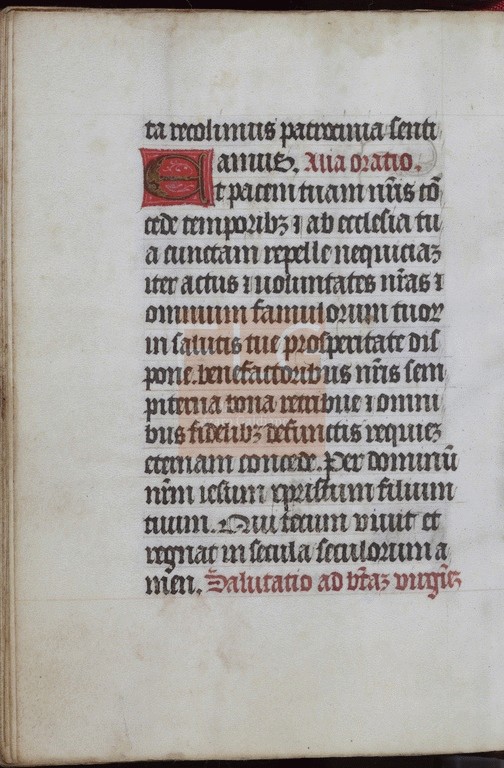 ta recolimus patrocinia senti
amus. Alia oratio.
Et pacem tuam nr̄is cō
cede temporibꝫ ⁊ ab ecclesia tu
a cunctam repelle nequiciaꝫ
iter actus ⁊ uoluntates nr̄as ⁊
omnium famulorum tuoꝝ
in salutis tue prosperitate dis
pone. benefactoribus nr̄is sem
piterna bona retribue ⁊ omni
bus fidelibꝫ defunctis requieꝫ
eternam concede. Per dominū
nr̄m iesum xpristum filium
tuum. Qui tecum viuit et
regnat in secula seculorum a
men. Salutatio ad btāꝫ virginēꝫ